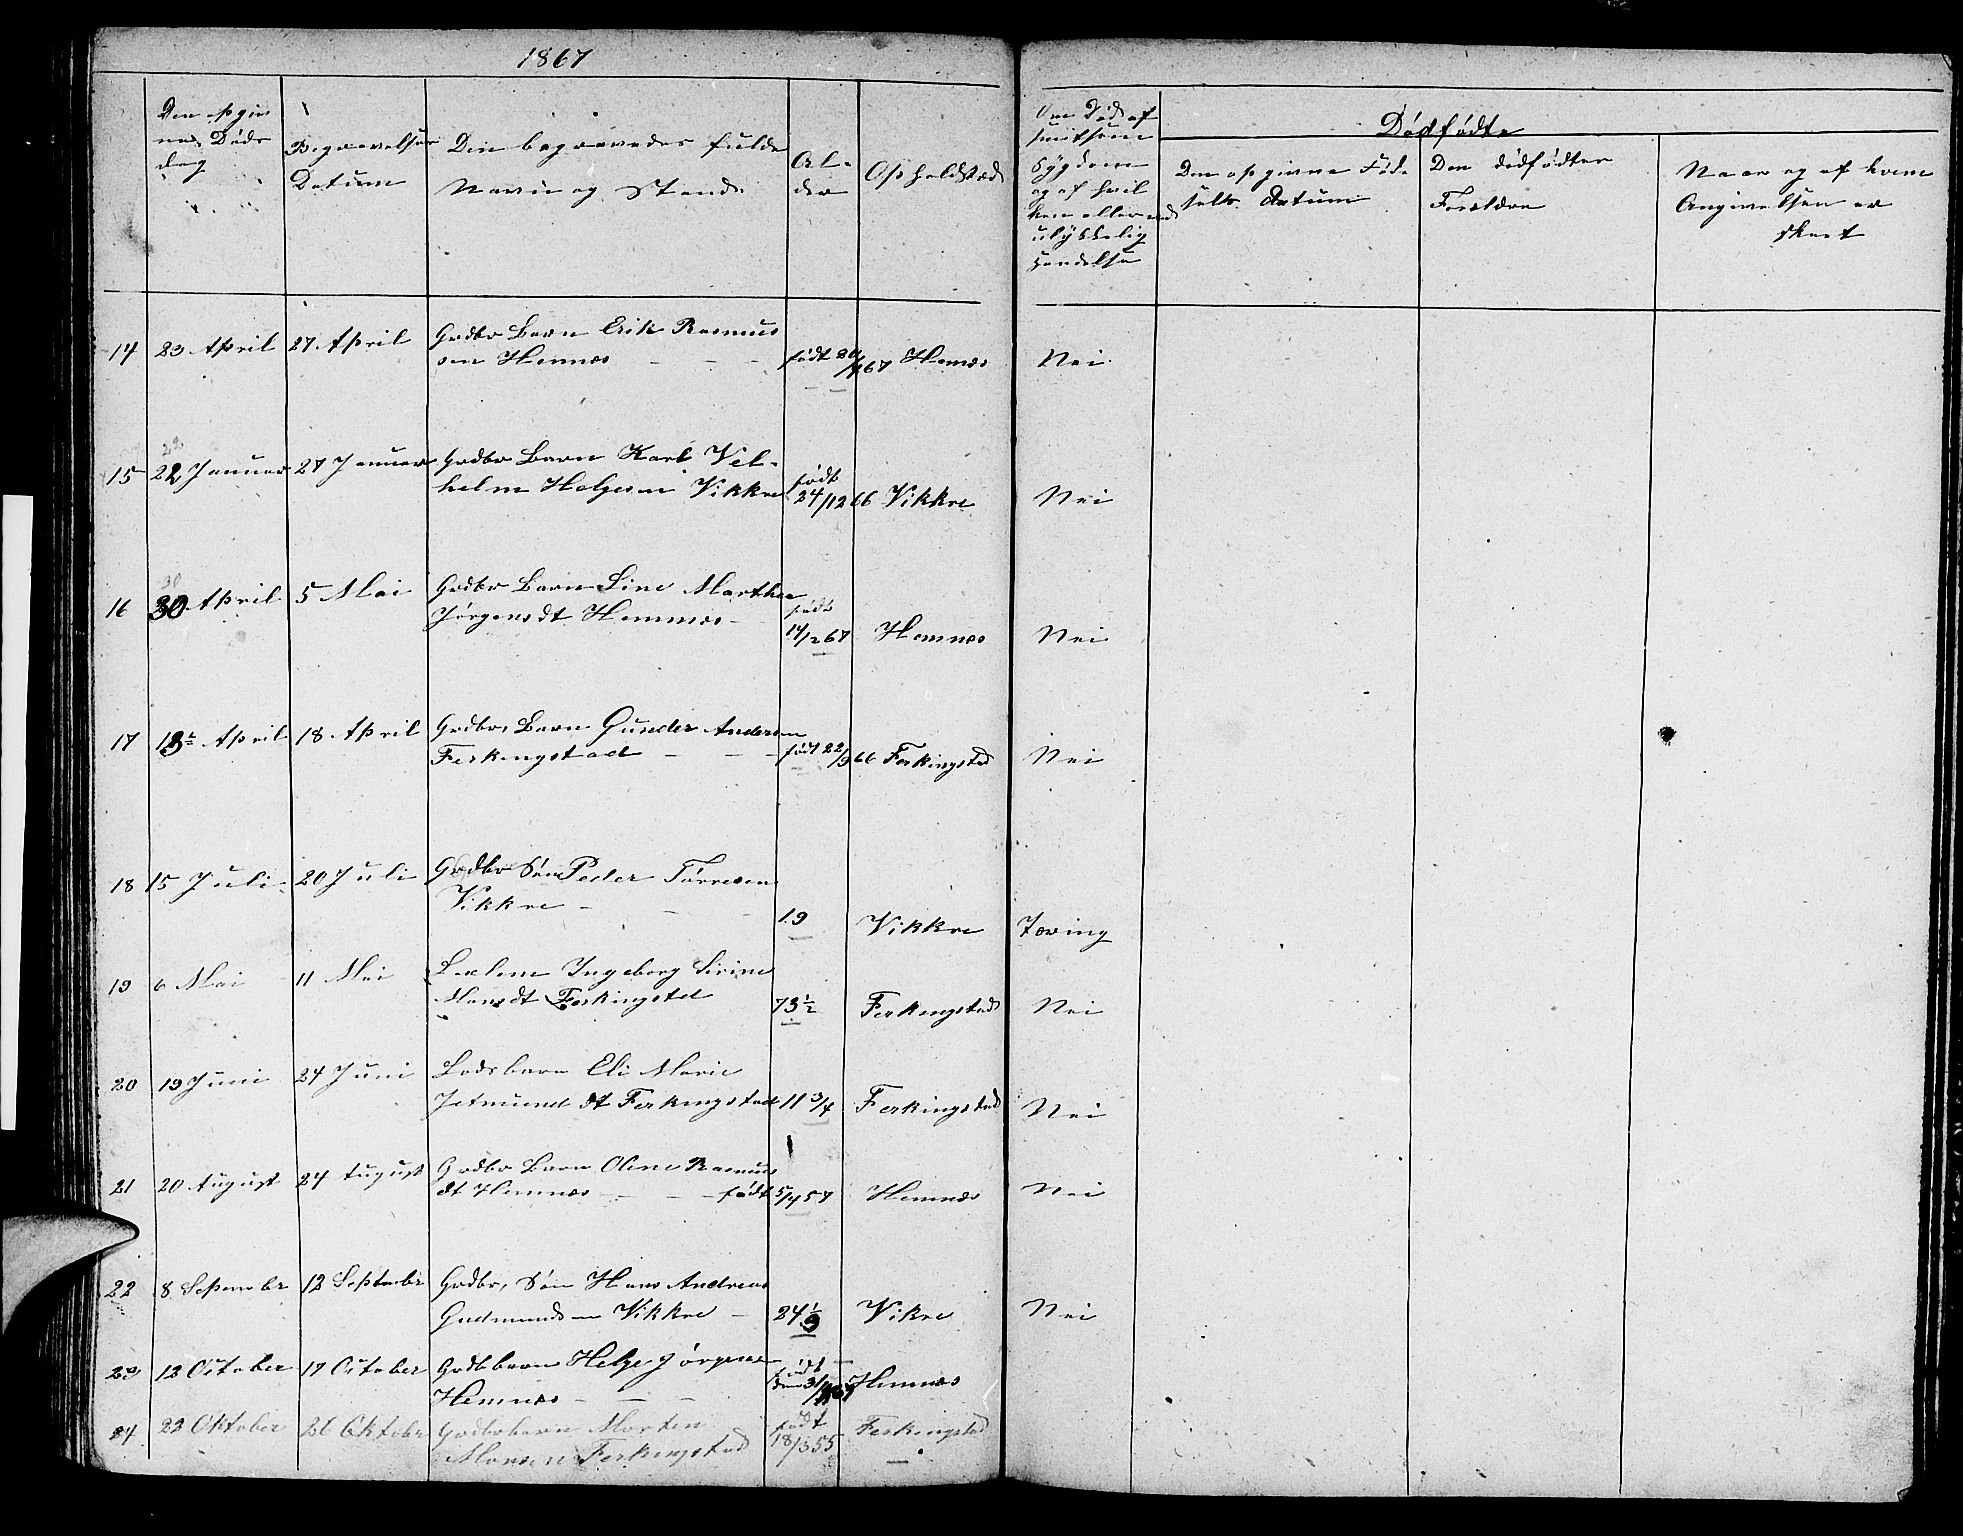 1867
Den opgiv
nes Døds
dag
Begravelses
Datum
Den begravedes fulde
Navn og Stand
Al-
der
Opholdsted
Om Død af
smitsom
Sygdom
og af hvil
ken eller ved
ulykkelig
Hændelse
Dødfødte
Den opgivne Fød-
sels Datum
Den dødfødtes
Forældre
Naar og af hvem
Angivelsen er
skeet
14 23 April 27 April Grdbr Barn Erik Rasmus
sen Hemnes - - - født 20/ 67 Hemnes Nei
15 22 Januar 27 Januar Grdbr Barn Karl Vel-
helm Helgesen Vikkre født
24/12 66 Vikkre Nei
16 30 April 5 Mai Grdbr Barn Line Marthe
Jørgensdt Hemnes - født
14/2 67 Hemnes Nei
17 13 April 18 April Grdbr, Barn Gunder Andersen
Ferkingstad - - - født 22/9 66 Ferkingstad Nei
18 15 Juli 20 Juli Grdbr Søn Peder Tørresen
Vikkre - - - 19 Vikkre Tæring
19 6 Mai 11 Mai Ingeborg Sirine
Monsdt Ferkingstd 73 1/2 Ferkingstad Nei
20 19 Juni 24 Juni Lodsbarn Eli Marie
Jetmund dt Ferkingstad 11 3/4 Ferkingstad Nei
21 20 August 24 August Grdbr Barn Oline Rasmus
dt Hemnes - - - født 5/4 57 Hemnes Nei
22 8 Sepember 12 Septembr Grdbr, Søn Hans Andreas
Gudmundsen Vikkre - 24 Vikre Nei
23 12 October 17 October Grdbbarn Helge Jørgensen
Hemnes - - - født
Hemnes
24 22 Oktober 26 Oktober Grdbrbarn Morten
Monsen Ferkingstad født
18/3 55 Ferkingstad